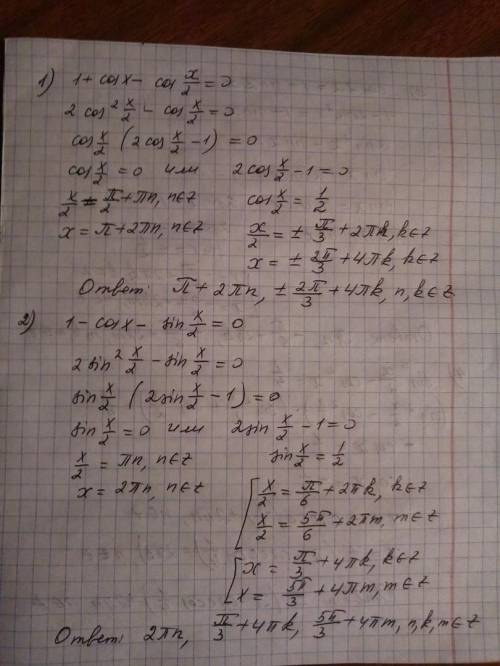 1) 1 + cos x - cos x/2 = 0
2 cos² x/2 - cos x/2 = 0
cos x/2 (2cos x/2 - 1) = 0
cos x/2 = 0 или 2cos x/2 - 1 = 0
x/2 = π/2 + πn, n∈Z cos x/2 = 1/2
x = π + 2πn, n∈Z x/2 = ± π/3 + 2πk, k∈Z
x = ± 2π/3 + 4πk, k∈Z
Ответ: π + 2πn, ± 2π/3 + 4πk, n, k∈Z
2) 1 - cos x - sin x/2 = 0
2 sin² x/2 - sin x/2 = 0
sin x/2 (2sin x/2 - 1) = 0
sin x/2 = 0 или 2sin x/2 - 1 = 0
x/2 = πn, n∈Z sin x/2 = 1/2
x = 2πn, n∈Z [ x/2 = π/6 + 2πk, k∈Z
x/2 = 5π/6 + 2πm, m∈Z
[ x = π/3 + 4πk, k∈Z
x = 5π/3 + 4πm, m∈Z
Ответ: 2πn, π/3 + 4πk, 5π/3 + 4πm, n, k, m∈Z